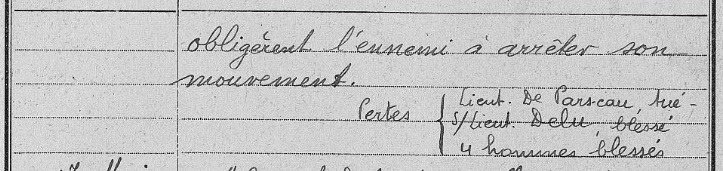 obligèrent l'ennemi à arrêter son
mouvement.
Pertes { Lieut. De Parscau, tué -
S/Lieut. Delu, blessé
4 hommes blessés